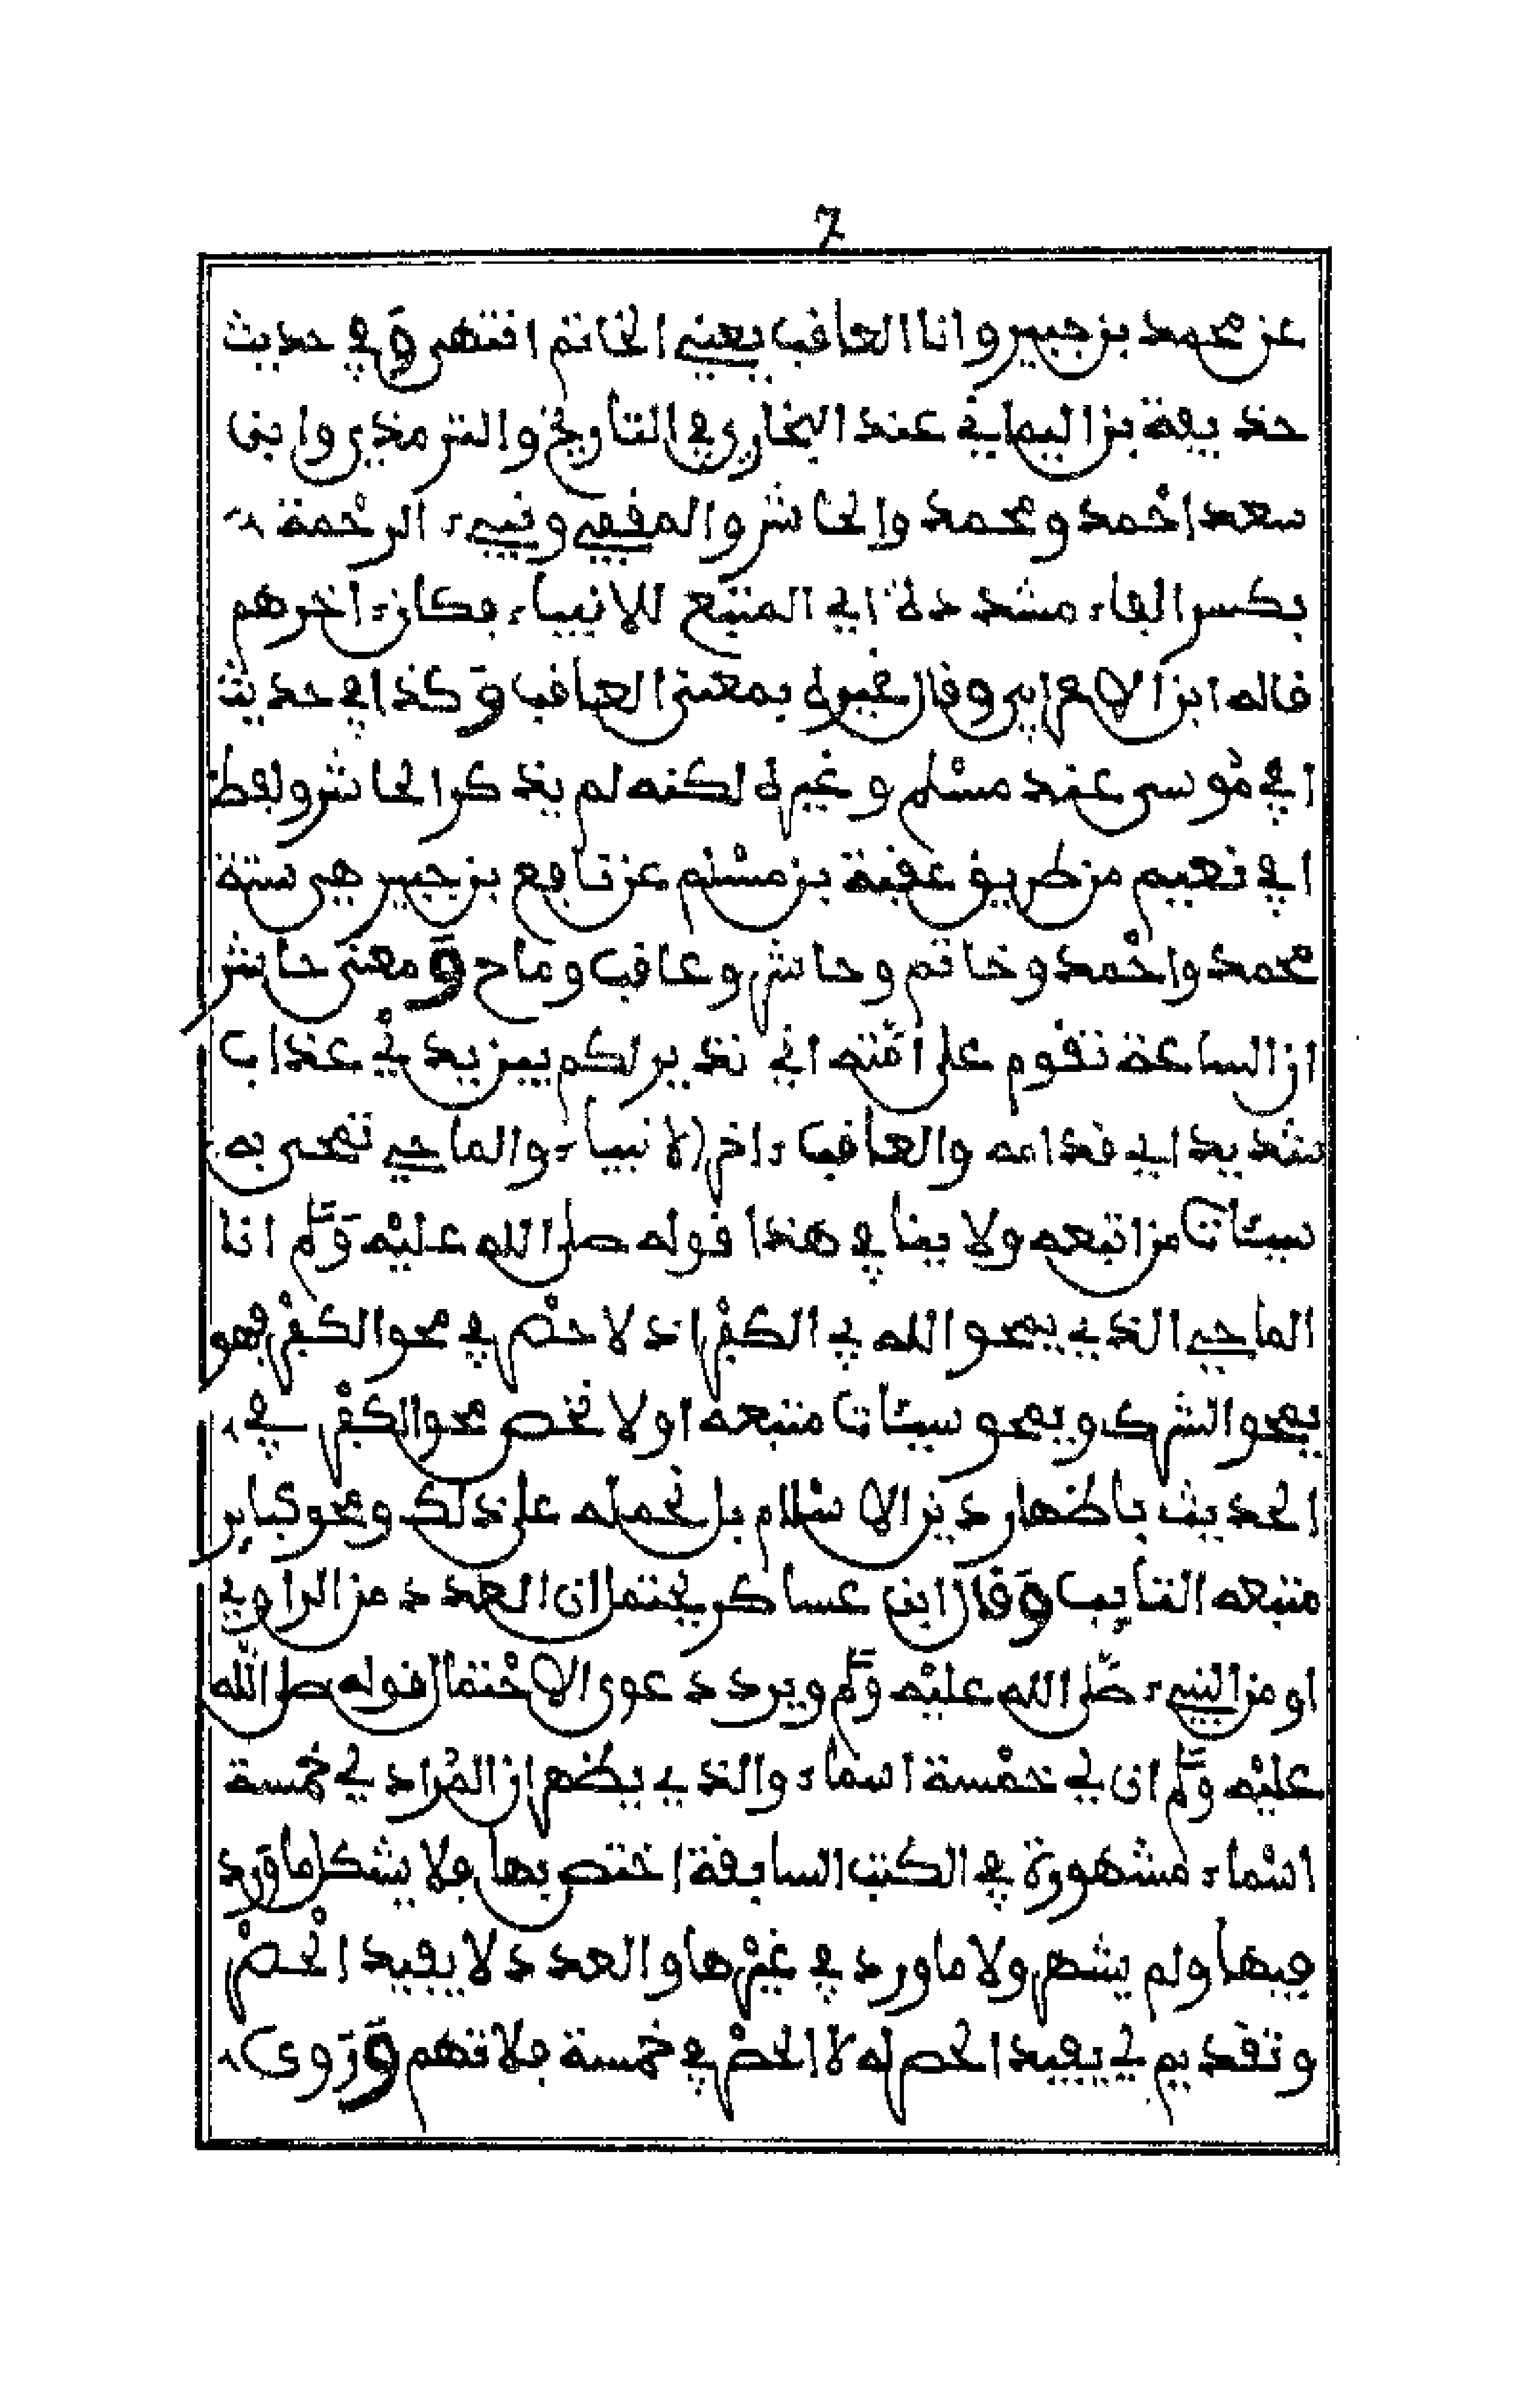 7
عن محمد بن جبير وانا العاقب يعني الخاتم انتهى وفي حديث
حذيفة بن اليماني عند البخاري في التاريخ والترمذي وابن
سعد احْمد ومحمد والحاشر والمقفي ونبيء الرحْمة
بكسر الفاء مشددة اي المتبع للانبياء فكان ءاخرهم
قاله ابن الاعرابي وقال غيره بمعنى العاقب وَكذا في حديث
ابي مُوسى عند مسْلم وغيره لكنه لم يذكر الحاشر ولفظ
ابي نعيم من طريق عقبة بن مسْلم عن نافع بن جبير هي ستة
محمد واحْمد وخاتم وحاشر وعاقب وماح وَمعنى حاشر
ان الساعة تقوم على امّته اني نذير لكم بين يديْ عذاب
شديد اي قدامه والعاقب ءاخر الانبياء والماحي تمحى به
سيئات من اتبعه ولا ينافي هذا قوله صلى الله عليْه وَسلم انا
الماحي الذي يمحو الله بي الكفْر اذ لا حصْر في محو الكفْر فهو
يمحو الشرك ويمحو سيئات متبعه او لا نخص محو الكفْر في
الحديث باظهار دين الاسْلام بل نحمله على ذلك ومحو كباير
متبعه التايب وَقال ابن عساكر يحتمل ان العدد من الراوي
او من النبيء صلّى الله عليْه وَسلم ويرد دعوى الاحْتمال قوله صلى الله
عليْه وَسلم ان لي خمْسة اسماء والذي يظهر ان المُراد لي خمْسة
اسْماء مشهورة في الكتب السابقة اختص بها فلا يشكل ما وَرد
فيها ولم يشهر ولا ما ورد في غيْرها والعدد لا يفيد الْحصْر
وتقديم لي يفيد الحصر له لا الحصْر في خمسة فلا تهم وَرَوى